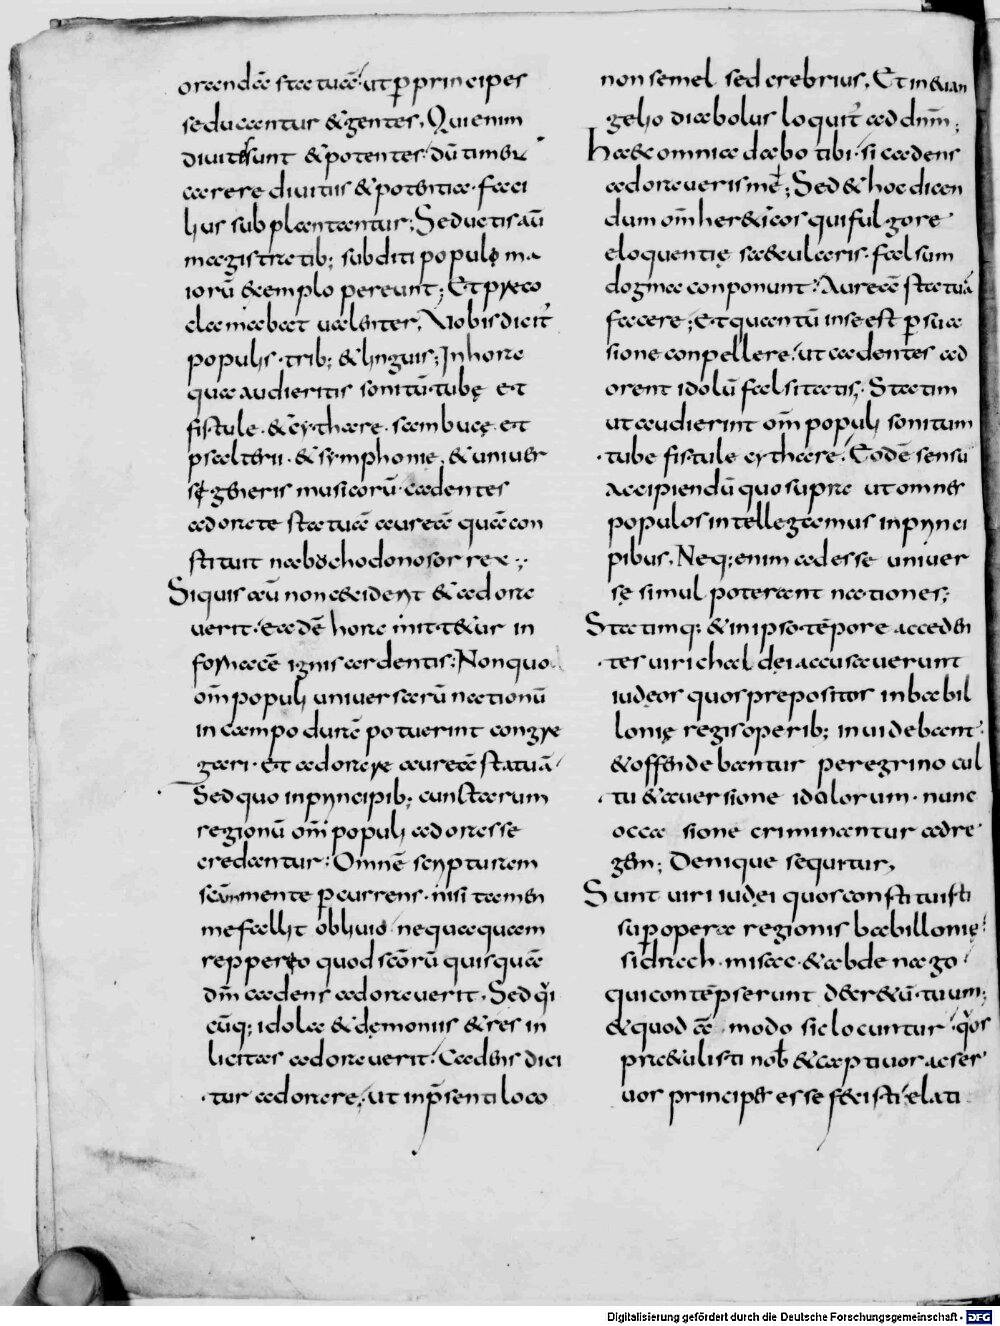 orandā statuā ut ꝑ principes
seducantur & gentes, Qui enim
divites sunt & potentes dū timent
carere divitiis & potentia · faci
lius subplantantur; Seductis aū
magistratib; subditi populi ma
iorū exemplo pereunt; Et praeco
clamabat valenter, Vobis dicit̄
populis · trib; & linguis; In hora
qua audieritis sonitū · tubę et
fistule · & cytharę · sambucę et
psalterii · & symphonie, & univer
si generis musicorū · cadentes
adorate statuā aureā quā con
stituit nabuchodonosor rex ·,·
Siquis aū non ceciderit & adora
verit · eadē hora mittetur in
fornacē ignis ardentis; Non quo
om̄ populi universarū nationū
in campo durā potuerint congre
gari · et adorare aureā statuā
Sed quo in principib; cunctarum
regionū om̄ populi adorasse
credantur; Omnē scripturam
scām mente ꝑcurrens · nisi tamen
me fallit oblivio nequaquam
repperio quod scōrū quisquā
dm̄ cadens adoraverit · Sed qui
cūq; idola & dęmonia & res in
licitas adoraverit · Cadens dici
tur adorare, ut in p̄senti loco
non semel sed crebrius, Et in evan
gelio diabolus loquit̄ ad dn̄m;
Haec omnia dabo tibi · si cadens
adoraveris me; Sed & hoc dicen
dum om̄ hereticos qui fulgore
eloquentię saecularis · falsum
dogma conponunt · Aureā statuā
facere; et quantū in se est ꝑsua
sione conpellere, ut cadentes ad
orent idolū falsitatis · Statim
ut audierint om̄ populi sonitum
tube fistule cytharę · Eodē sensu
accipiendū quo supra ut omnes
populos intellegamus in princi
pibus, Neq; enim adesse univer
sę simul poterant nationes;
Statimq; & in ipso tēpore acceden
tes viri chaldei accusaverunt
iudęos quos prepositos in babil
lonię regis operib; invidebant ·
& offendebantur peregrino cul
tu & aversione idolorum · nunc
occa sione criminantur ad re
gem; Denique sequitur,
Sunt viri iudęi quos constituisti
sup̄ opera regionis babillonię
sidrach · misac · & abdenago
qui contēpserunt decretū · tuum;
& quod ē modo sic locuntur · quos
pretulisti nob̄ & captivos ac ser
vos principes esse fecisti elati